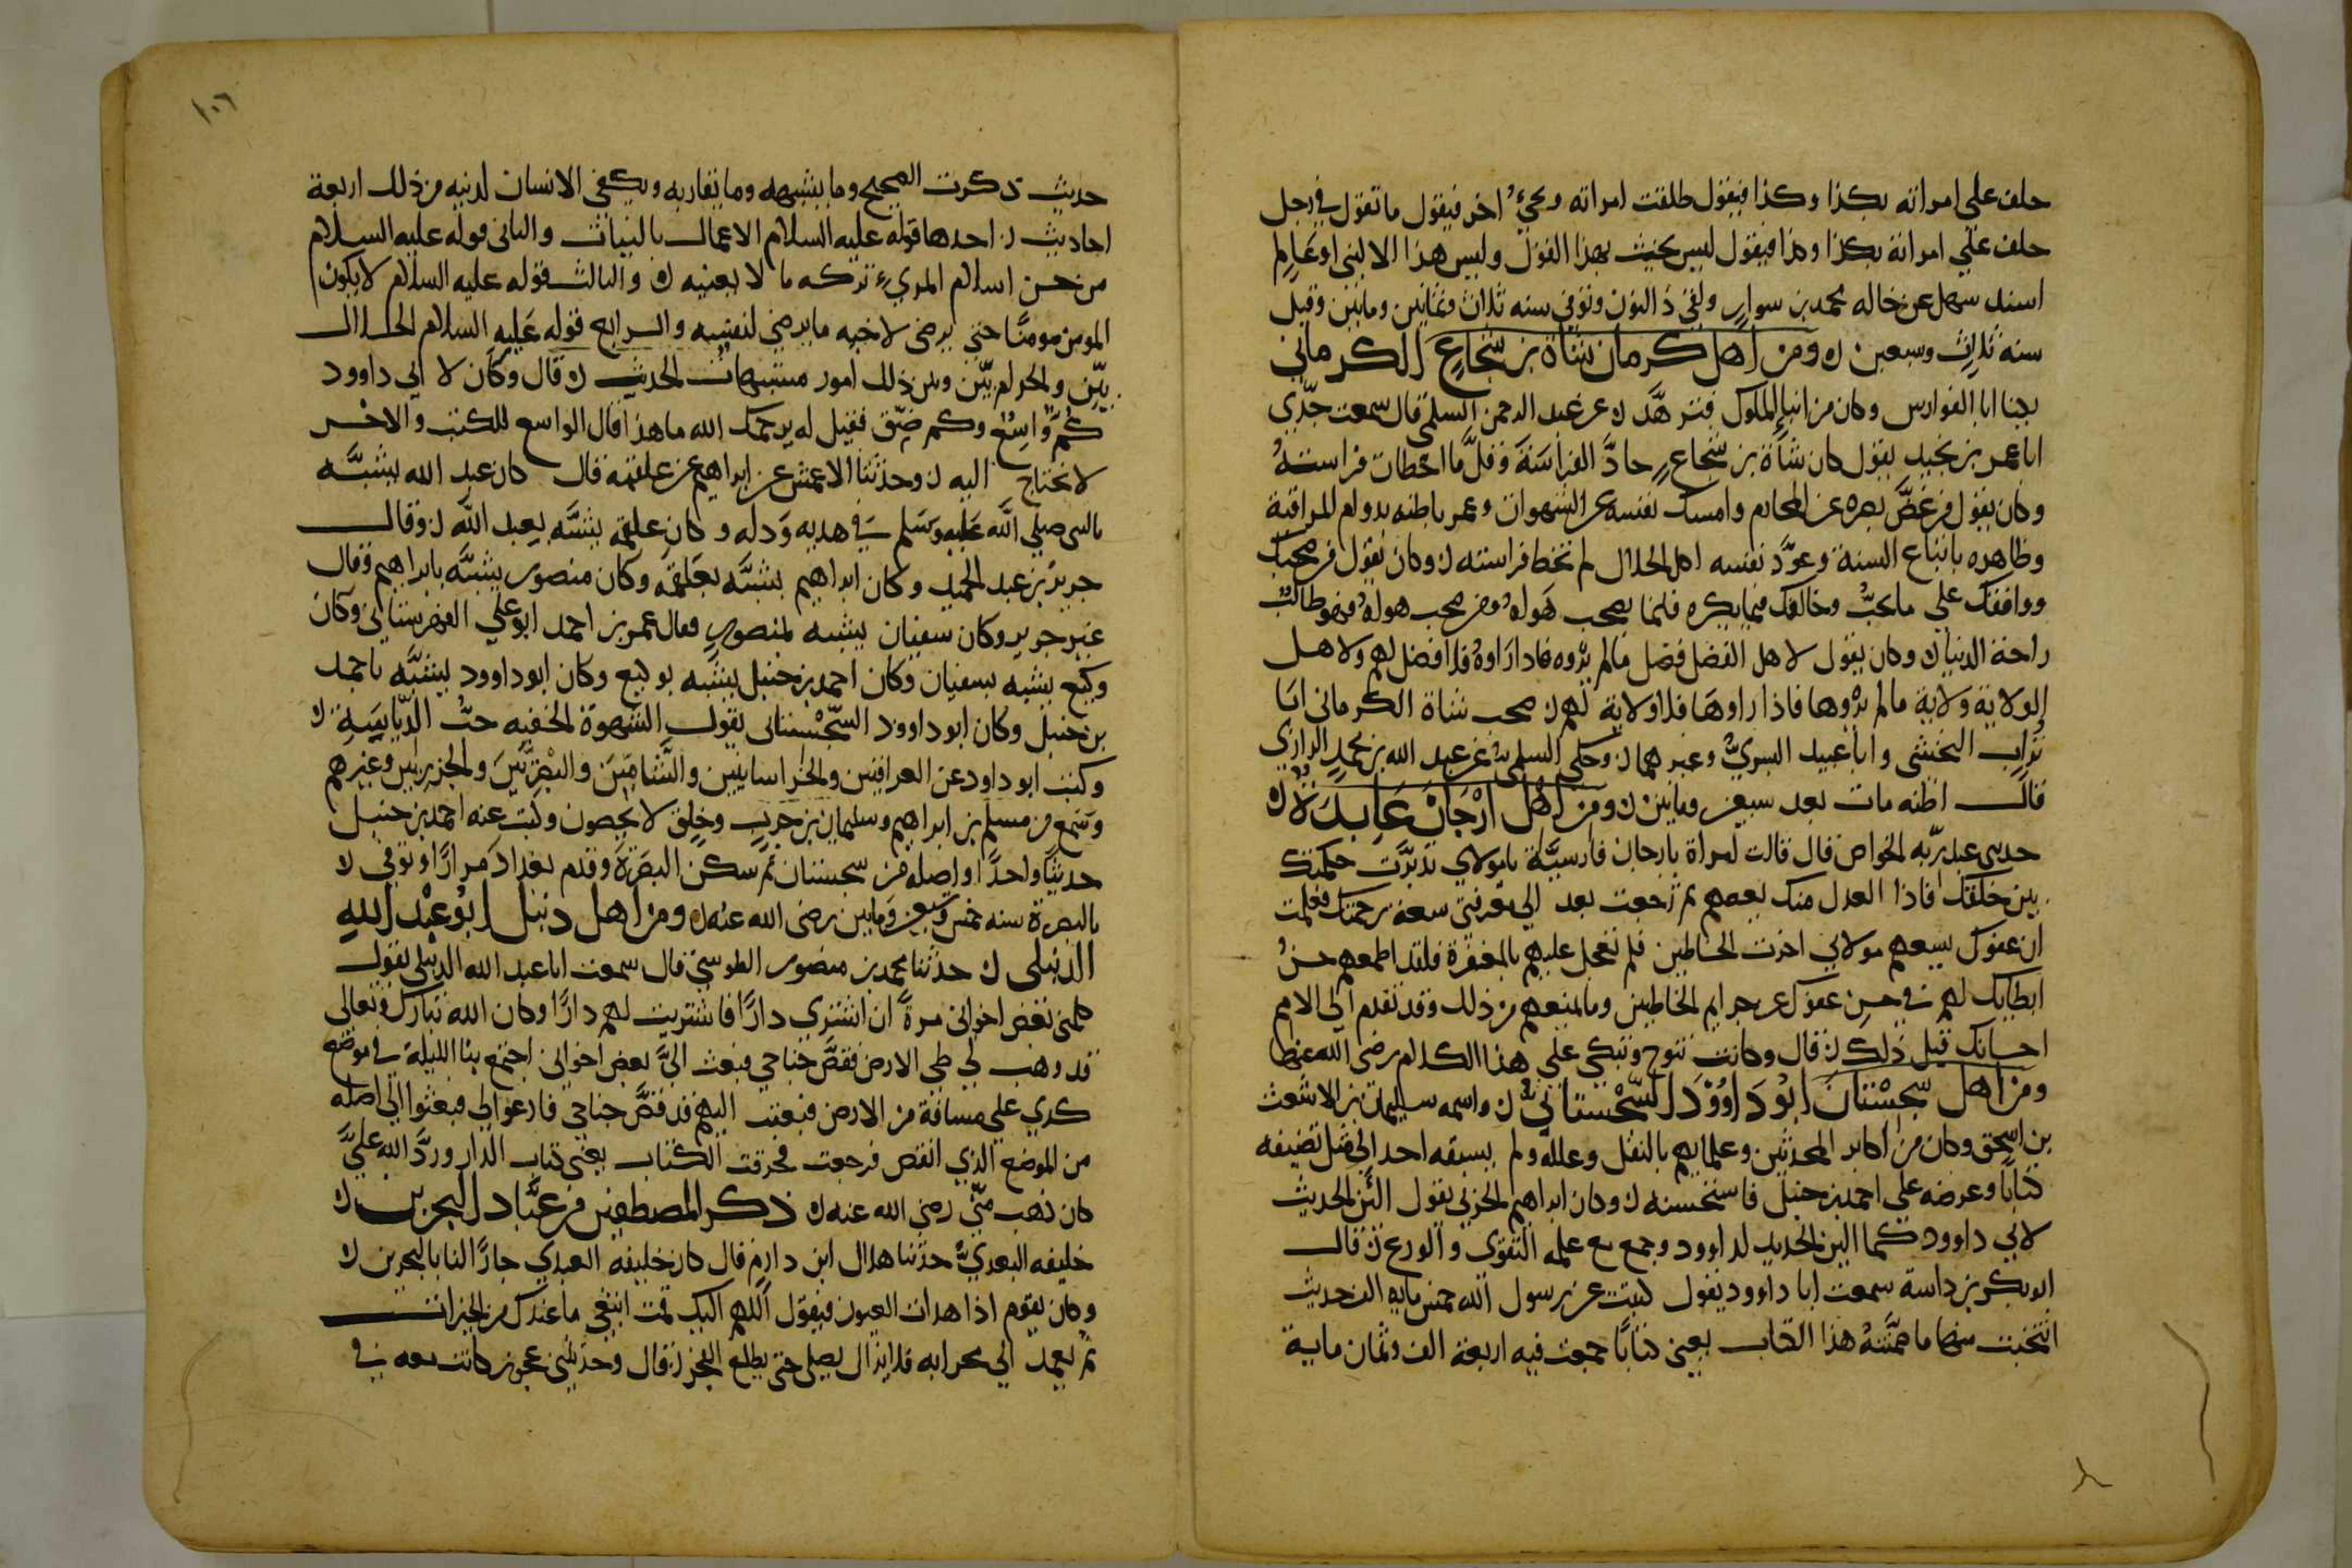 حلف على امراته بكذا وكذا فيقول طلقت امراته ويجيُ اخر فيقول ما تقول في رجل
حلف على امراته بكذا وكذا فيقول ليس يحنث بهذا القول وليس هذا الا لنبي او عَالم
اسند سهل عن خاله محمد بن سوار ولقي ذا النون وتوفي سنه ثلاث وثمانين ومايتين وقيل
سنه ثلاث وسبعين ومن اهل كرمان شاة بن شجاع الكرماني
يكنا ابا الفوارس وكان من ابنا الملوك فتزهَّد عن عبد الرحمن السلمي قال سمعت جدّي
ابا عمر بن نجيد يقول كان شاة بن شجاع حادَّ الفراسَة وقلَّ ما اخطات فراسته
وكان يقول من غضَّ بصره عن المحارم وامسك نفسه عن الشهوات وعمر باطنه بدوام المراقبة
وظاهره باتباع السنة وعوَّد نفسه اكل الحلال لم تخط فراسته وكان يقول من صحبك
ووافقك على ما يحبُّ وخالفك فيما يكره فانما يصحب هَواه ومن صحب هواه فهو طالب
راحة الدنيا وكان يقول لاهل الفضل فضل ما لم يرَوه فاذا راوهُ فلا فضل لهم ولاهل
الولاية ولاية ما لم يرَوها فاذا راوهَا فلا ولاية لهم صحب شاة الكرماني ابَا
تراب النخشبى وابا عبيد البسريُّ وغيرهما وحكى السلمي عن عبد الله بن محمد الرازي
قال اظنه مات بعد سبعين ومايتين ومن اهل ارَّجَان عَابدَة
حدثني عبد ربّه الخواص قال قالت امراة بارجان فارسيَّة يا مولاي تدبرَّت حكمتك
بين خلقك فاذا العدل منك يعمهم ثم رَجعت بعد الى معرفتي سعة رحمتك فعلمت
ان عفوك يسعهم مولاي اخرت الخاطين فلم تعجل عليهم بالمغفرة فلقد اطمعهم حسنُ
ابطايك لهم في حسن عفوك عن جرايم الخاطين وما لمنعهم من ذلك وقد تقدم الى الامم
احسانك قبل ذلك قال وكانت تنوح وتبكي على هذا الكلام رضي الله عنها
ومن اهل سّجسْتانَ ابُو دَاوُوْدَ السّجْستاني واسمه سليمان بن الاشعث
بن اسحق وكان من اكابر المحدثين وعلمايهم بالنقل وعلله ولم يسبقه احد الى مثل تصنيفه
كتابًا وعرضه على احمد بن حنبل فاستحسنه وكان ابراهيم الحربي يقول الُيّن الحديث
لابي داوود كما الين الحديد لداوود وجمع مع علمه التقوى والورع قال
ابو بكر بن داسة سمعت ابا داوود يقول كتبت عن رسول الله خمس مايه الف حديث
انتخبت منها ما ضمَّنتهُ هذا الكتاب يعنى كتابًا جمعت فيه اربعة الف وثمان ماية
١٠٦
حديث ذكرت الصحيح وما يشبهه وما يقاربه ويكفي الانسان لدينه من ذلك اربعة
احاديث احدها قوله عليه السلام الاعمال بالنيات والثاني قوله عليه السلام
من حسن اسلام المريء تركه ما لا يعنيه والثالث قوله عليه السلام لا يكون
المومن مومنًا حتى يرضى لاخيه ما يرضى لنفسه والرابع قوله عَليه السلام الحلال
بيّن والحرام بيّن وبين ذلك امور مشتبهات الحديث قال وكان لابي داوود
كمٌّ وَاسعٌ وكم ضيّق فقيل له يرحمك الله ما هذا قال الواسع للكتب والاخر
لا نحتاج اليه وحدثنا الاعمش عن ابراهيم عن علقمة قال كان عبد الله يشبَّه
بالنبي صلى الله عَليه وسَلم في هديه وَدله وكان علقمة يشبَّه بعبد الله وقال
جرير بن عبد الحميد وكان ابراهيم يشبَّه بعَلقمة وكان منصور يشبَّه بابراهيم وقال
غير جرير وكان سفيان يشبه بمنصور وقال عمر بن احمد ابو علي القهرستاني وكان
وكيع يشبه بسفيان وكان احمد بن حنبل يشبه بوكيع وكان ابو داوود يشبَّه باحمد
بن حنبل وكان ابو داوود السّجْستاني يقول الشهوة الخفيه حبُّ الرّيَاسَة
وكتب ابو داود عن العراقيين والخراسانيين والشَّاميّينَ والبَصريّينَ والجزريين وغيرهم
وسَمع من مسلم بن ابراهيم وسليمان بن حرب وخلق لا يحصون وكتب عنه احمد بن حنبل
حديثًا واحدًا واصله من سجستان ثم سكن البصَرة وقدم بغدادَ مرارًا وتوفي
بالبصرة سنه خمس وسَبعين ومايتين رضى الله عنه ومن اهل دنبل ابوُ عبْد الله
الدنبلى حدثنا محمد بن منصور الطوسيّ قال سمعت ابا عبد الله الدنبلي يقول
كلمنى بعض اخواني مرة ان اشتري دارًا فاشتريت لهم دارًا وكان الله تبارك وتعالى
قد وهب لي طي الارض فقصَّ جناحي فبعث اليَّ بعض اخواني اجتمع بنا الليلة في موضع
كذي على مسافة من الارض فبعثت اليهم قد قصَّ جناحي فادعوا لي فبعثوا الى اصله
من الموضع الذي انقص فرجعت فحرقت الكتاب يعنى كتاب الدار وردَّ الله عليَّ
كان ذهب منّي رضي الله عنه ذكر المصطفين من عبَّاد البحرين
خليفه العبديُّ حدثنا هلال ابن دارم قال كان خليفه العبدي جارًا لنا بالبحرين
وكان يقوم اذا هدات العيون فيقول اللهم اليك قمت ابتغي ما عندك من الخيرات
ثم يعمد الى محرابه فلا يزال يصلى حتى يطلع الفجر قال وحدثتني عجوز كانت معه في